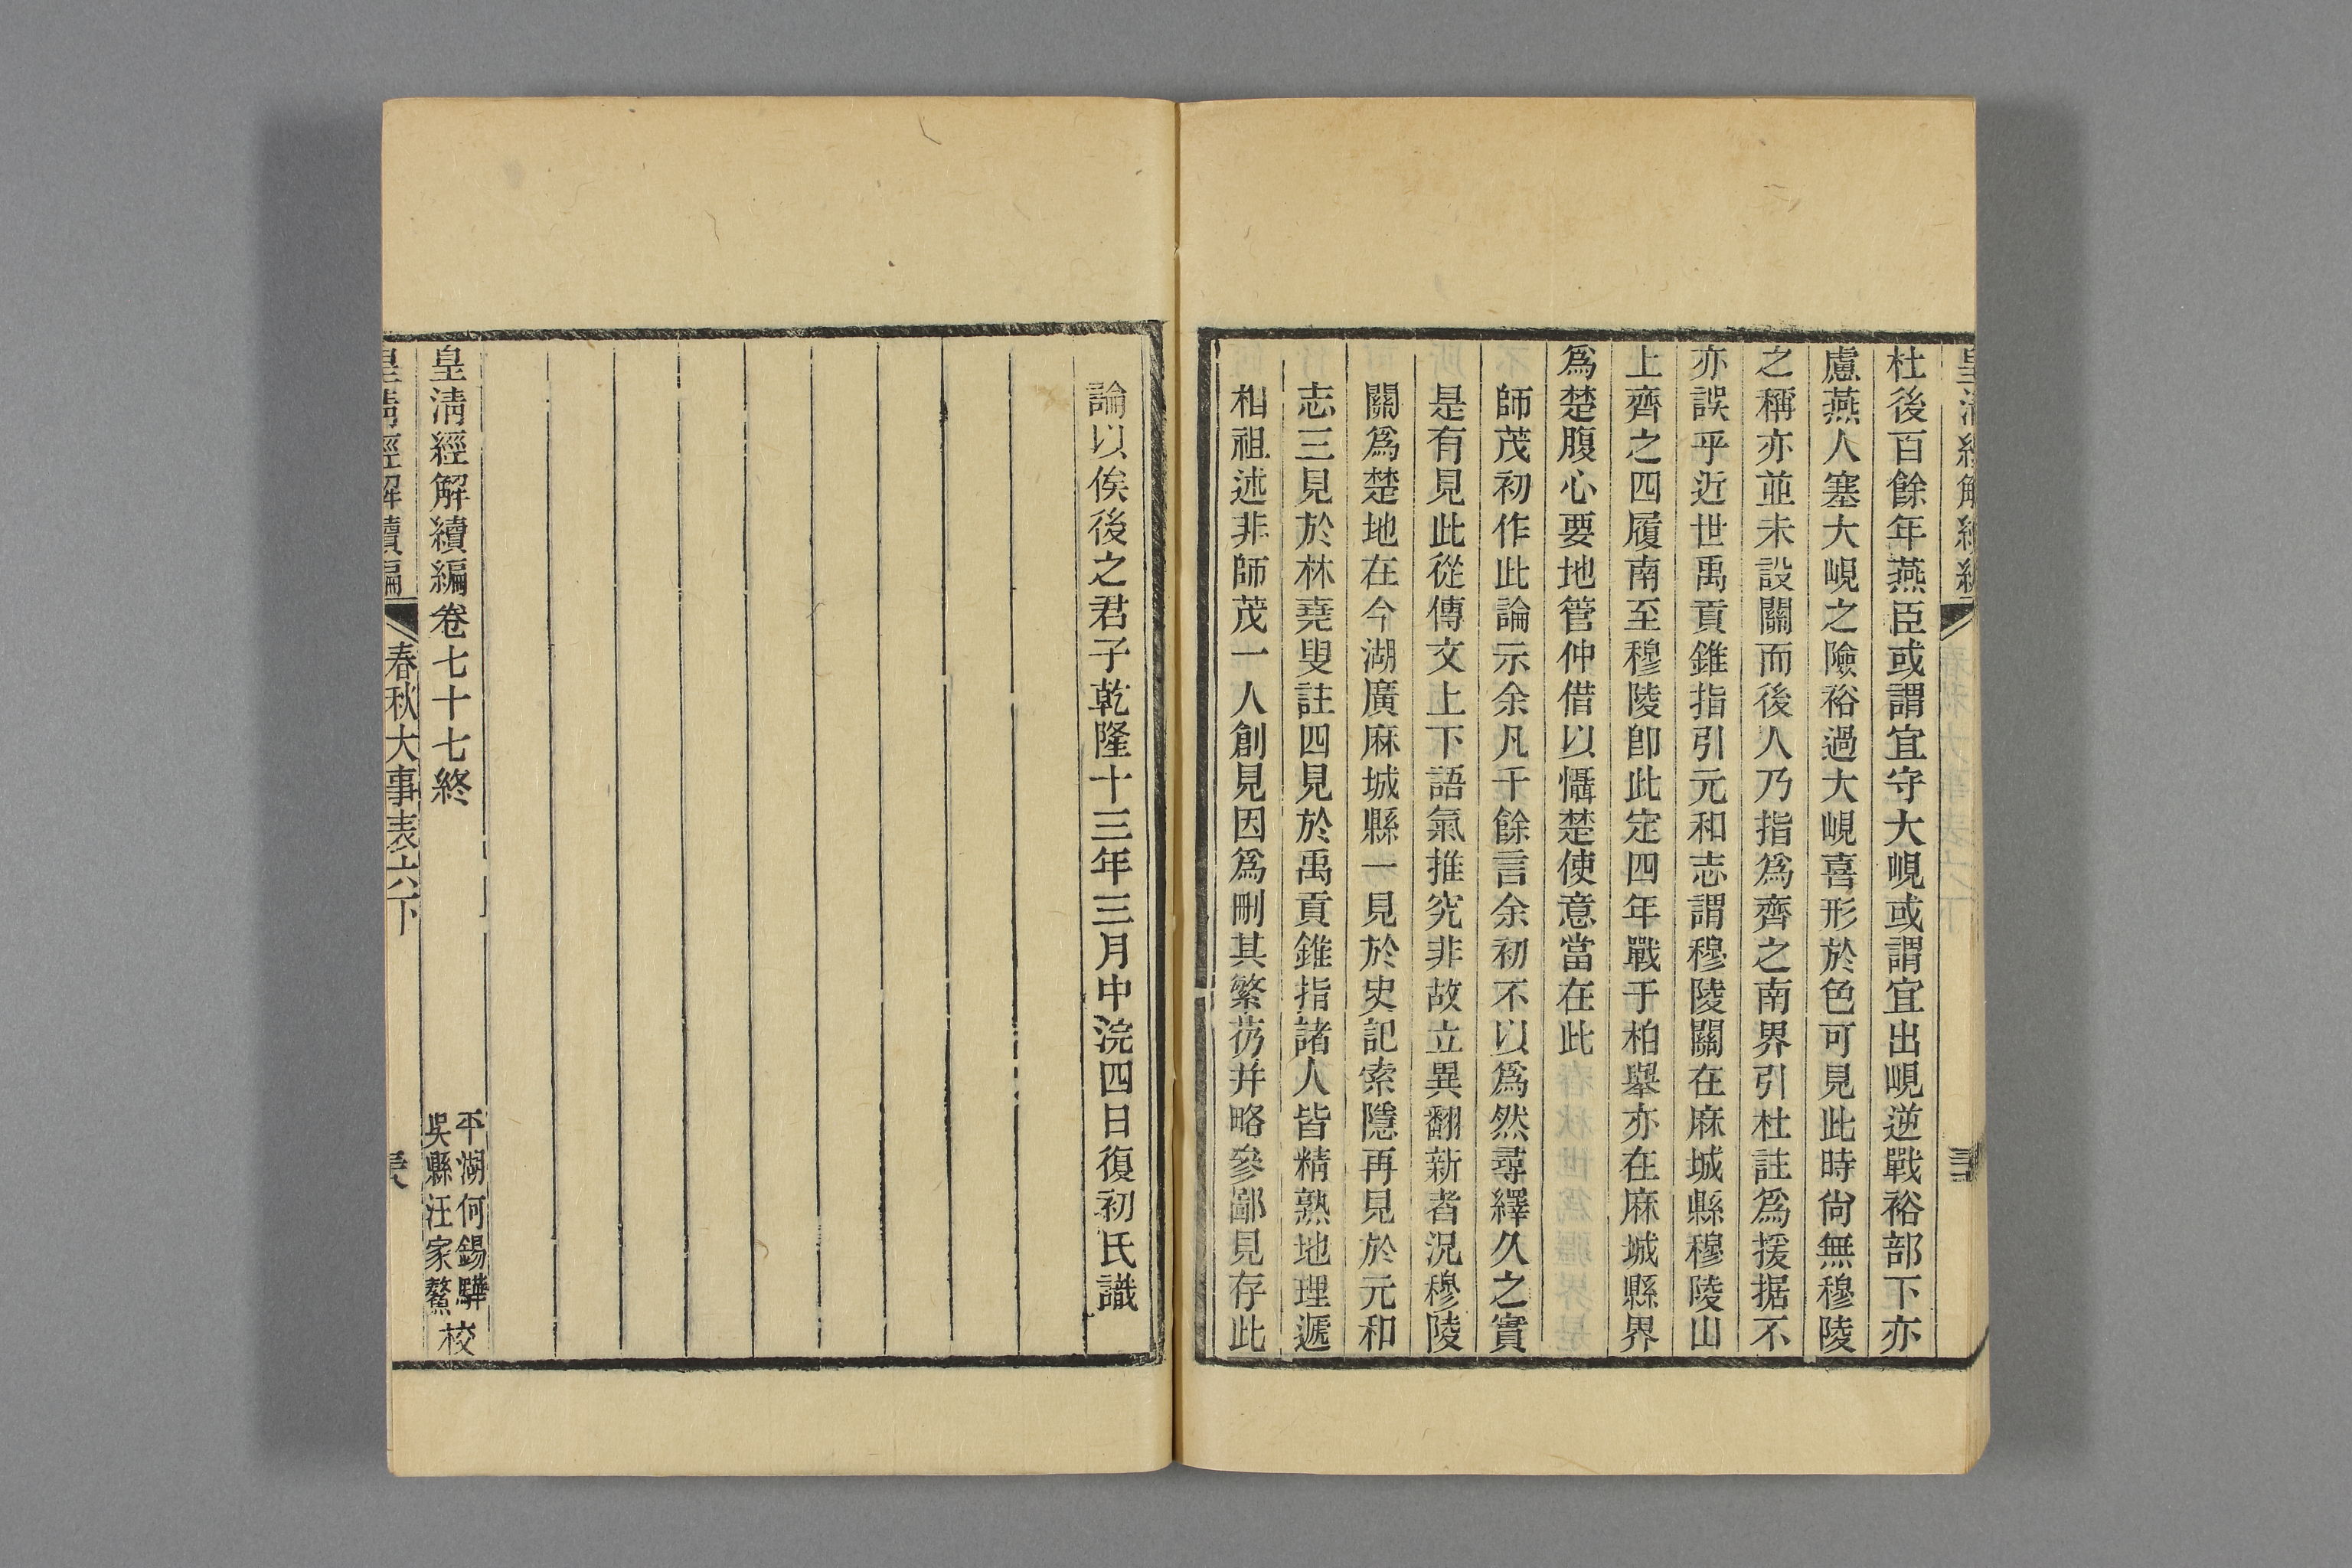 皇清經解續編
杜後百餘年燕臣或謂宜守大峴或謂宜出峴逆戰裕部下亦
慮燕人塞大峴之險裕過大峴喜形於色可見此時尙無穆陵
之稱亦並未設關而後人乃指為齊之南界引杜註為援据不
亦誤乎近世禹貢錐指引元和志謂穆陵關在麻城縣穆陵山
上齊之四履南至穆陵卽此定四年戰于柏舉亦在麻城縣界
為楚腹心要地管仲借以懾楚使意當在此
師茂初作此論示余凡千餘言余初不以為然尋繹久之實
是有見此從傳文上下語氣推究非故立異翻新者況穆陵
關為楚地在今湖廣麻城縣一見於史記索隱再見於元和
志三見於林堯叟註四見於禹貢錐指諸人皆精熟地理遞
相祖述非師茂一人創見因為刪其繁芿并略參鄙見存此
論以俟後之君子乾隆十三年三月中浣四日復初氏識
皇清經解續編卷七十七終
平湖何錫驊
吳縣汪家鰲
校
皇清經解續編
春秋大事表六下